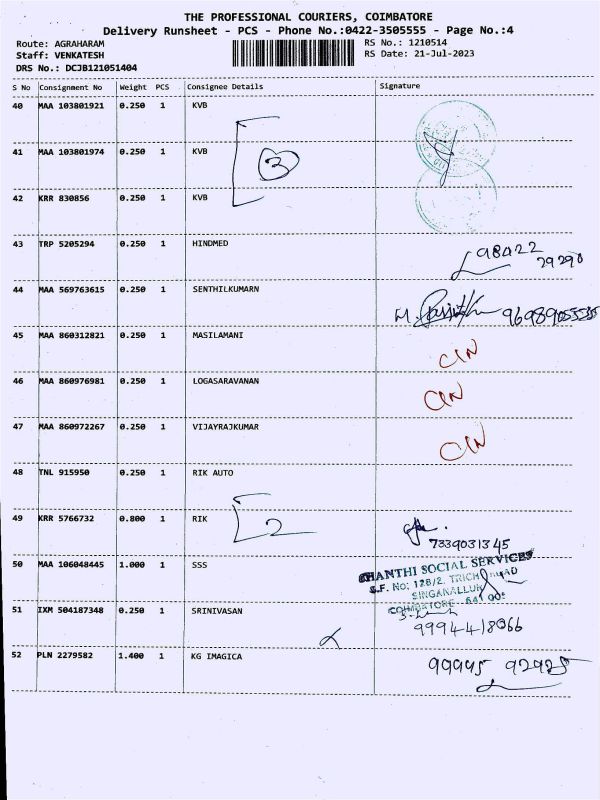 THE PROFESSIONAL COURIERS, COIMBATORE
Delivery Runsheet - PCS - Phone No.:0422-3505555 - Page No.:4
Route: AGRAHARAM
RS No.: 1210514
Staff: VENKATESH
RS Date: 21-Jul-2023
DRS No.: DCJB121051404
S No Consignment No Weight PCS Consignee Details Signature
40 MAA 103801921 0.250 1 KVB
41 MAA 103801974 0.250 1 KVB
3
42 KRR 830856 0.250 1 KVB
43 TRP 5205294 0.250 1 HINDMED
98422
29290
44 MAA 569763615 0.250 1 SENTHILKUMARN
M.
45 MAA 860312821 0.250 1 MASILAMANI
C/N
46 MAA 860976981 0.250 1 LOGASARAVANAN
C/N
47 MAA 860972267 0.250 1 VIJAYRAJKUMAR
C/N
48 TNL 915950 0.250 1 RIK AUTO
49 KRR 5766732 0.800 1 RIK
2
7339031345
50 MAA 106048445 1.000 1 SSS
SHANTHI SOCIAL SERVICES
S.F. No: 128/2, TRICHY ROAD
SINGANALLUR
COIMBATORE - 641 005
51 IXM 504187348 0.250 1 SRINIVASAN
9994418066
52 PLN 2279582 1.400 1 KG IMAGICA
99995 92925